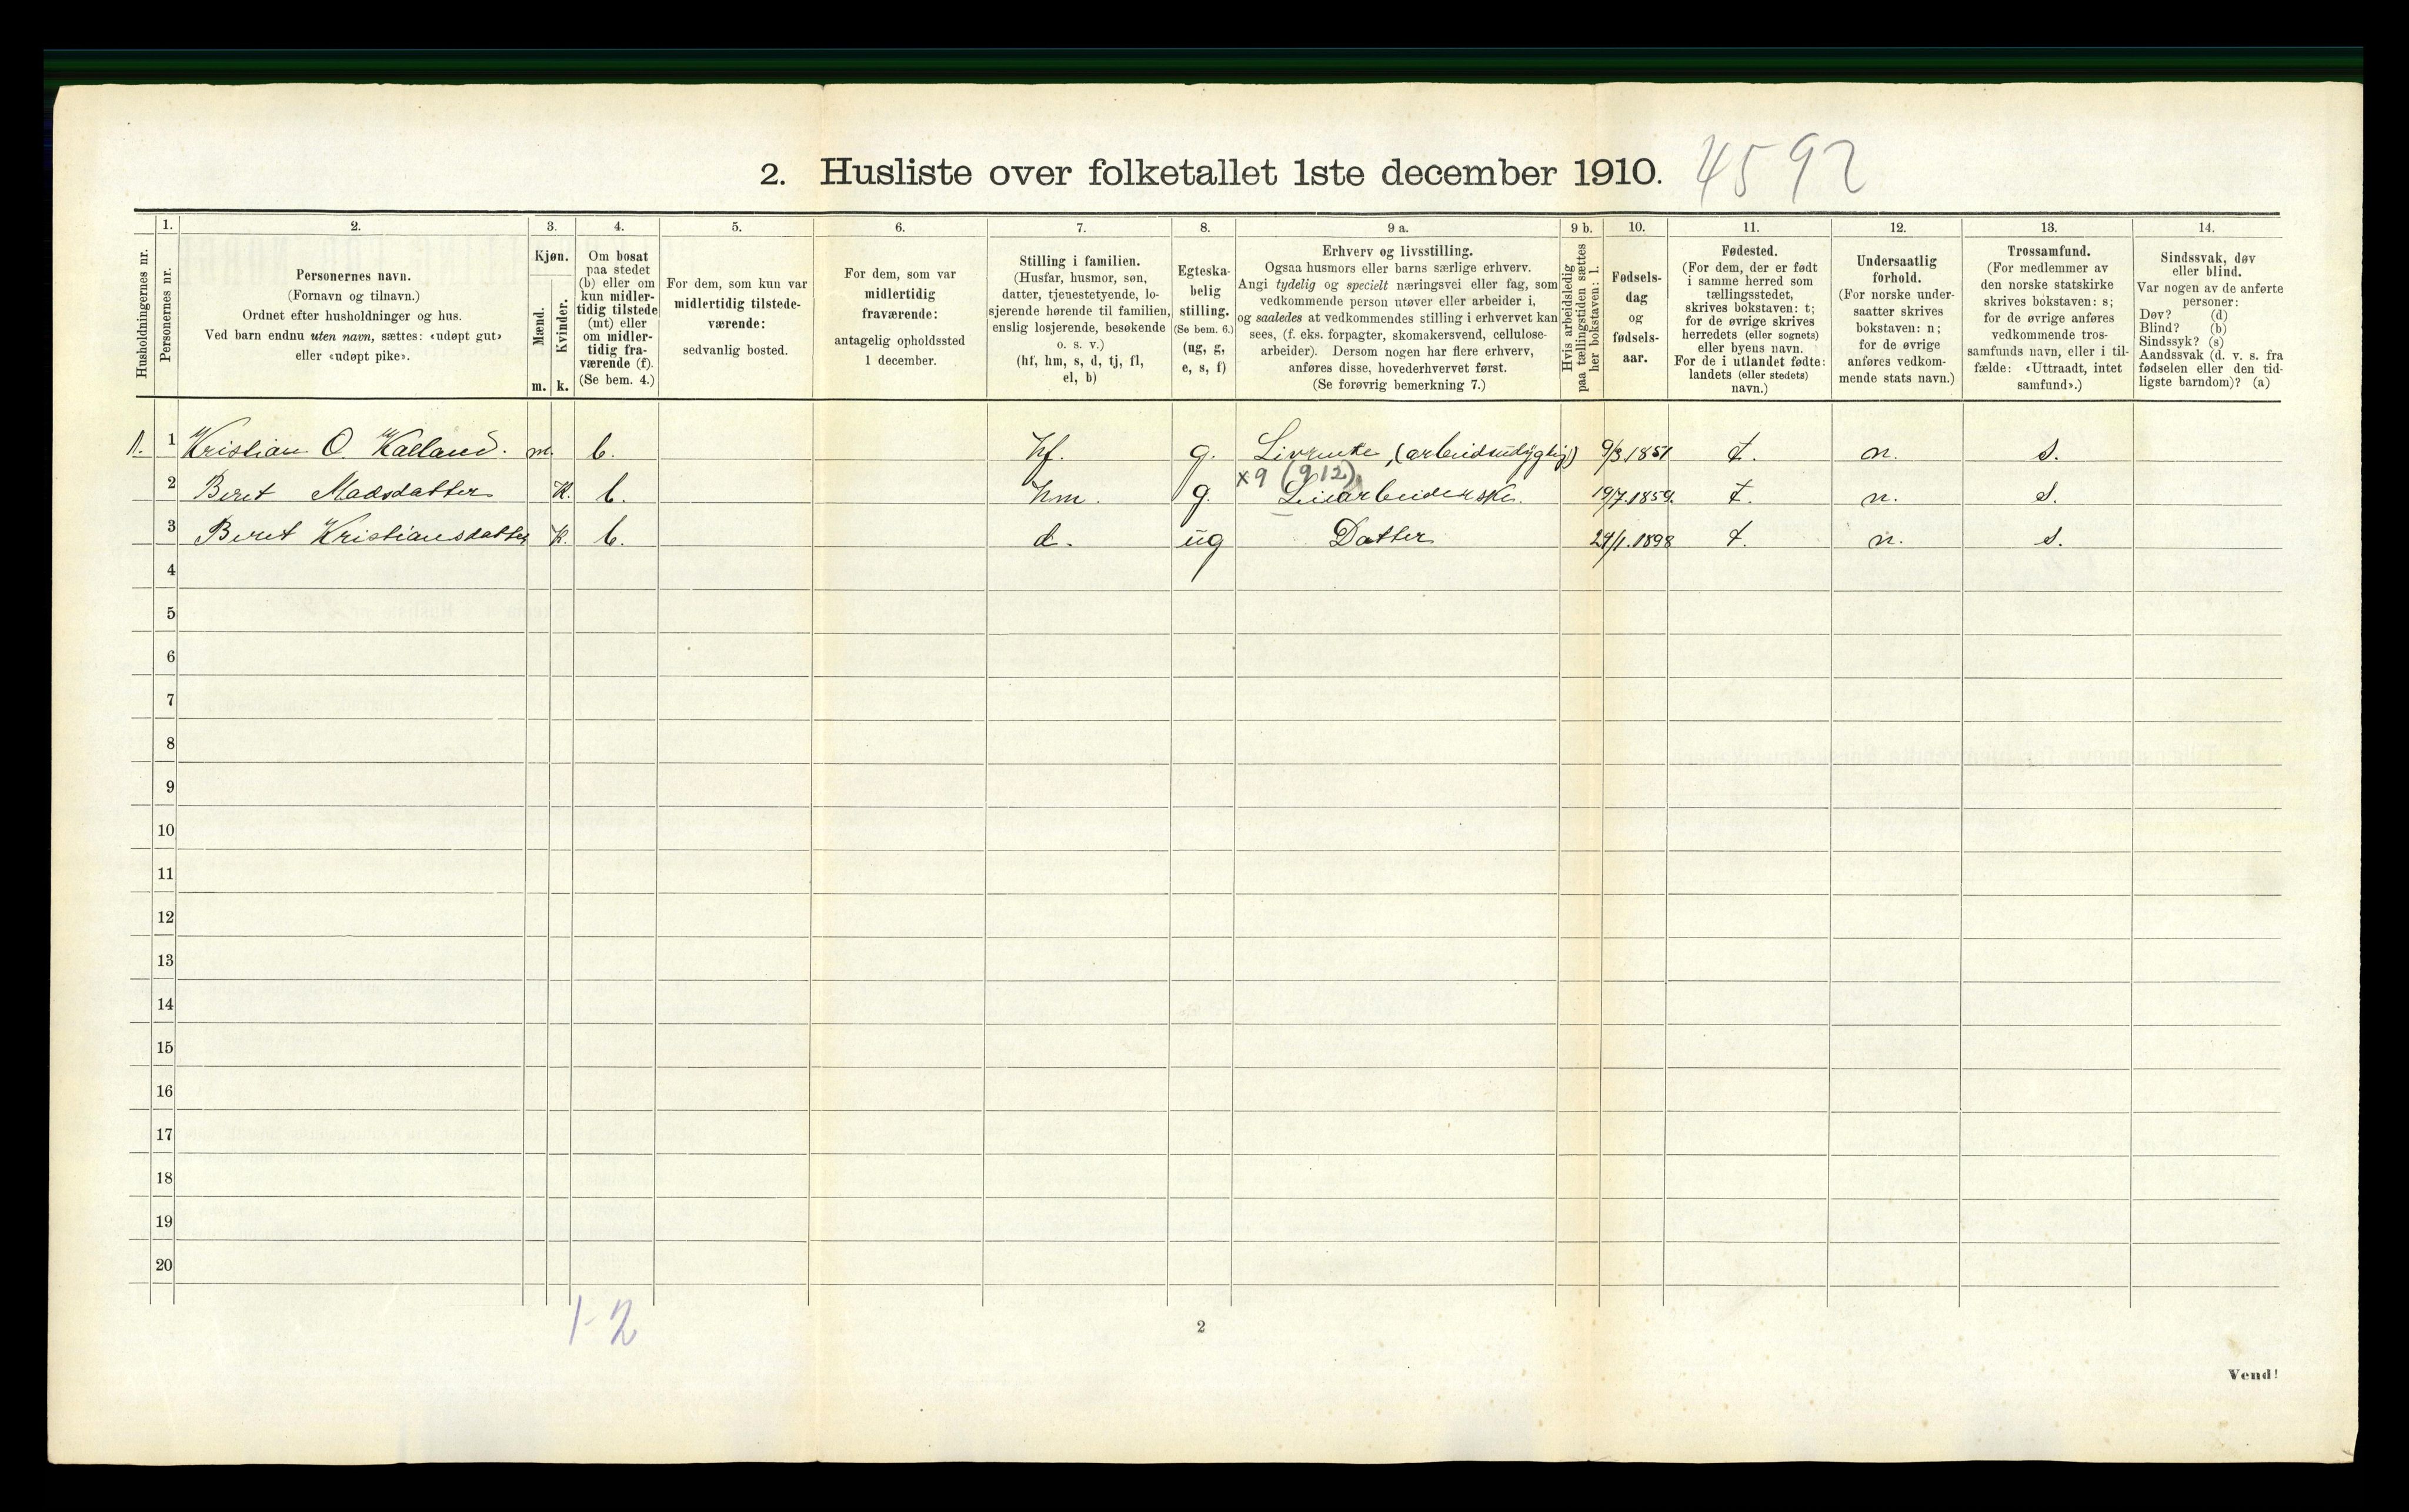 2. Husliste over folketallet 1ste december 1910. 4592
1. 2. 3. 4. 5. 6. 7. 8. 9 a. 9 b. 10. 11. 12. 13. 14.
Husholdningernes nr.
Personernes nr.
Personernes navn.
(Fornavn og tilnavn.)
Ordnet efter husholdninger og hus.
Ved barn endnu uten navn, sættes: «udøpt gut»
eller «udøpt pike».
Kjøn.
Mænd.
Kvinder.
m. k.
Om bosat
paa stedet
(b) eller om
kun midler-
tidig tilstede
(mt) eller
om midler-
tidig fra-
værende (f).
(Se bem. 4.)
For dem, som kun var
midlertidig tilstede-
værende:
sedvanlig bosted.
For dem, som var
midlertidig
fraværende:
antagelig opholdssted
1 december.
Stilling i familien.
(Husfar, husmor, søn,
datter, tjenestetyende, lo-
sjerende hørende til familien,
enslig losjerende, besøkende
o. s. v.)
(hf, hm, s, d, tj, fl,
el, b)
Egteska-
belig
stilling.
(Se bem. 6.)
(ug, g,
e, s, f)
Erhverv og livsstilling.
Ogsaa husmors eller barns særlige erhverv.
Angi tydelig og specielt næringsvei eller fag, som
vedkommende person utøver eller arbeider i,
og saaledes at vedkommendes stilling i erhvervet kan
sees, (f. eks. forpagter, skomakersvend, cellulose-
arbeider). Dersom nogen har flere erhverv,
anføres disse, hovederhvervet først.
(Se forøvrig bemerkning 7.)
Hvis arbeidsledig
paa tællingstiden sættes
her bokstaven: l.
Fødsels-
dag
og
fødsels-
aar.
Fødested.
(For dem, der er født
i samme herred som
tællingsstedet,
skrives bokstaven: t;
for de øvrige skrives
herredets (eller sognets)
eller byens navn.
For de i utlandet fødte:
landets (eller stedets)
navn.)
Undersaatlig
forhold.
(For norske under-
saatter skrives
bokstaven: n;
for de øvrige
anføres vedkom-
mende stats navn.)
Trossamfund.
(For medlemmer av
den norske statskirke
skrives bokstaven: s;
for de øvrige anføres
vedkommende tros-
samfunds navn, eller i til-
fælde: «Uttraadt, intet
samfund».)
Sindssvak, døv
eller blind.
Var nogen av de anførte
personer:
Døv? (d)
Blind? (b)
Sindssyk? (s)
Aandssvak (d. v. s. fra
fødselen eller den tid-
ligste barndom)? (a)
1. 1 Kristian O. Kalland. m. b. hf. g. Livrente, (arbeidsudygtig) 9/3 1851 t. n. s.
x9 (912)
2 Beret Madsdatter K. b. hm. g. 19/7.1859. t. n. s.
3 Beret Kristiansdatter K. b. d. ug Datter 29/1.1898 t. n. s.
4
5
6
7
8
9
10
11
12
13
14
15
16
17
18
19
20
1-2
2
Vend!